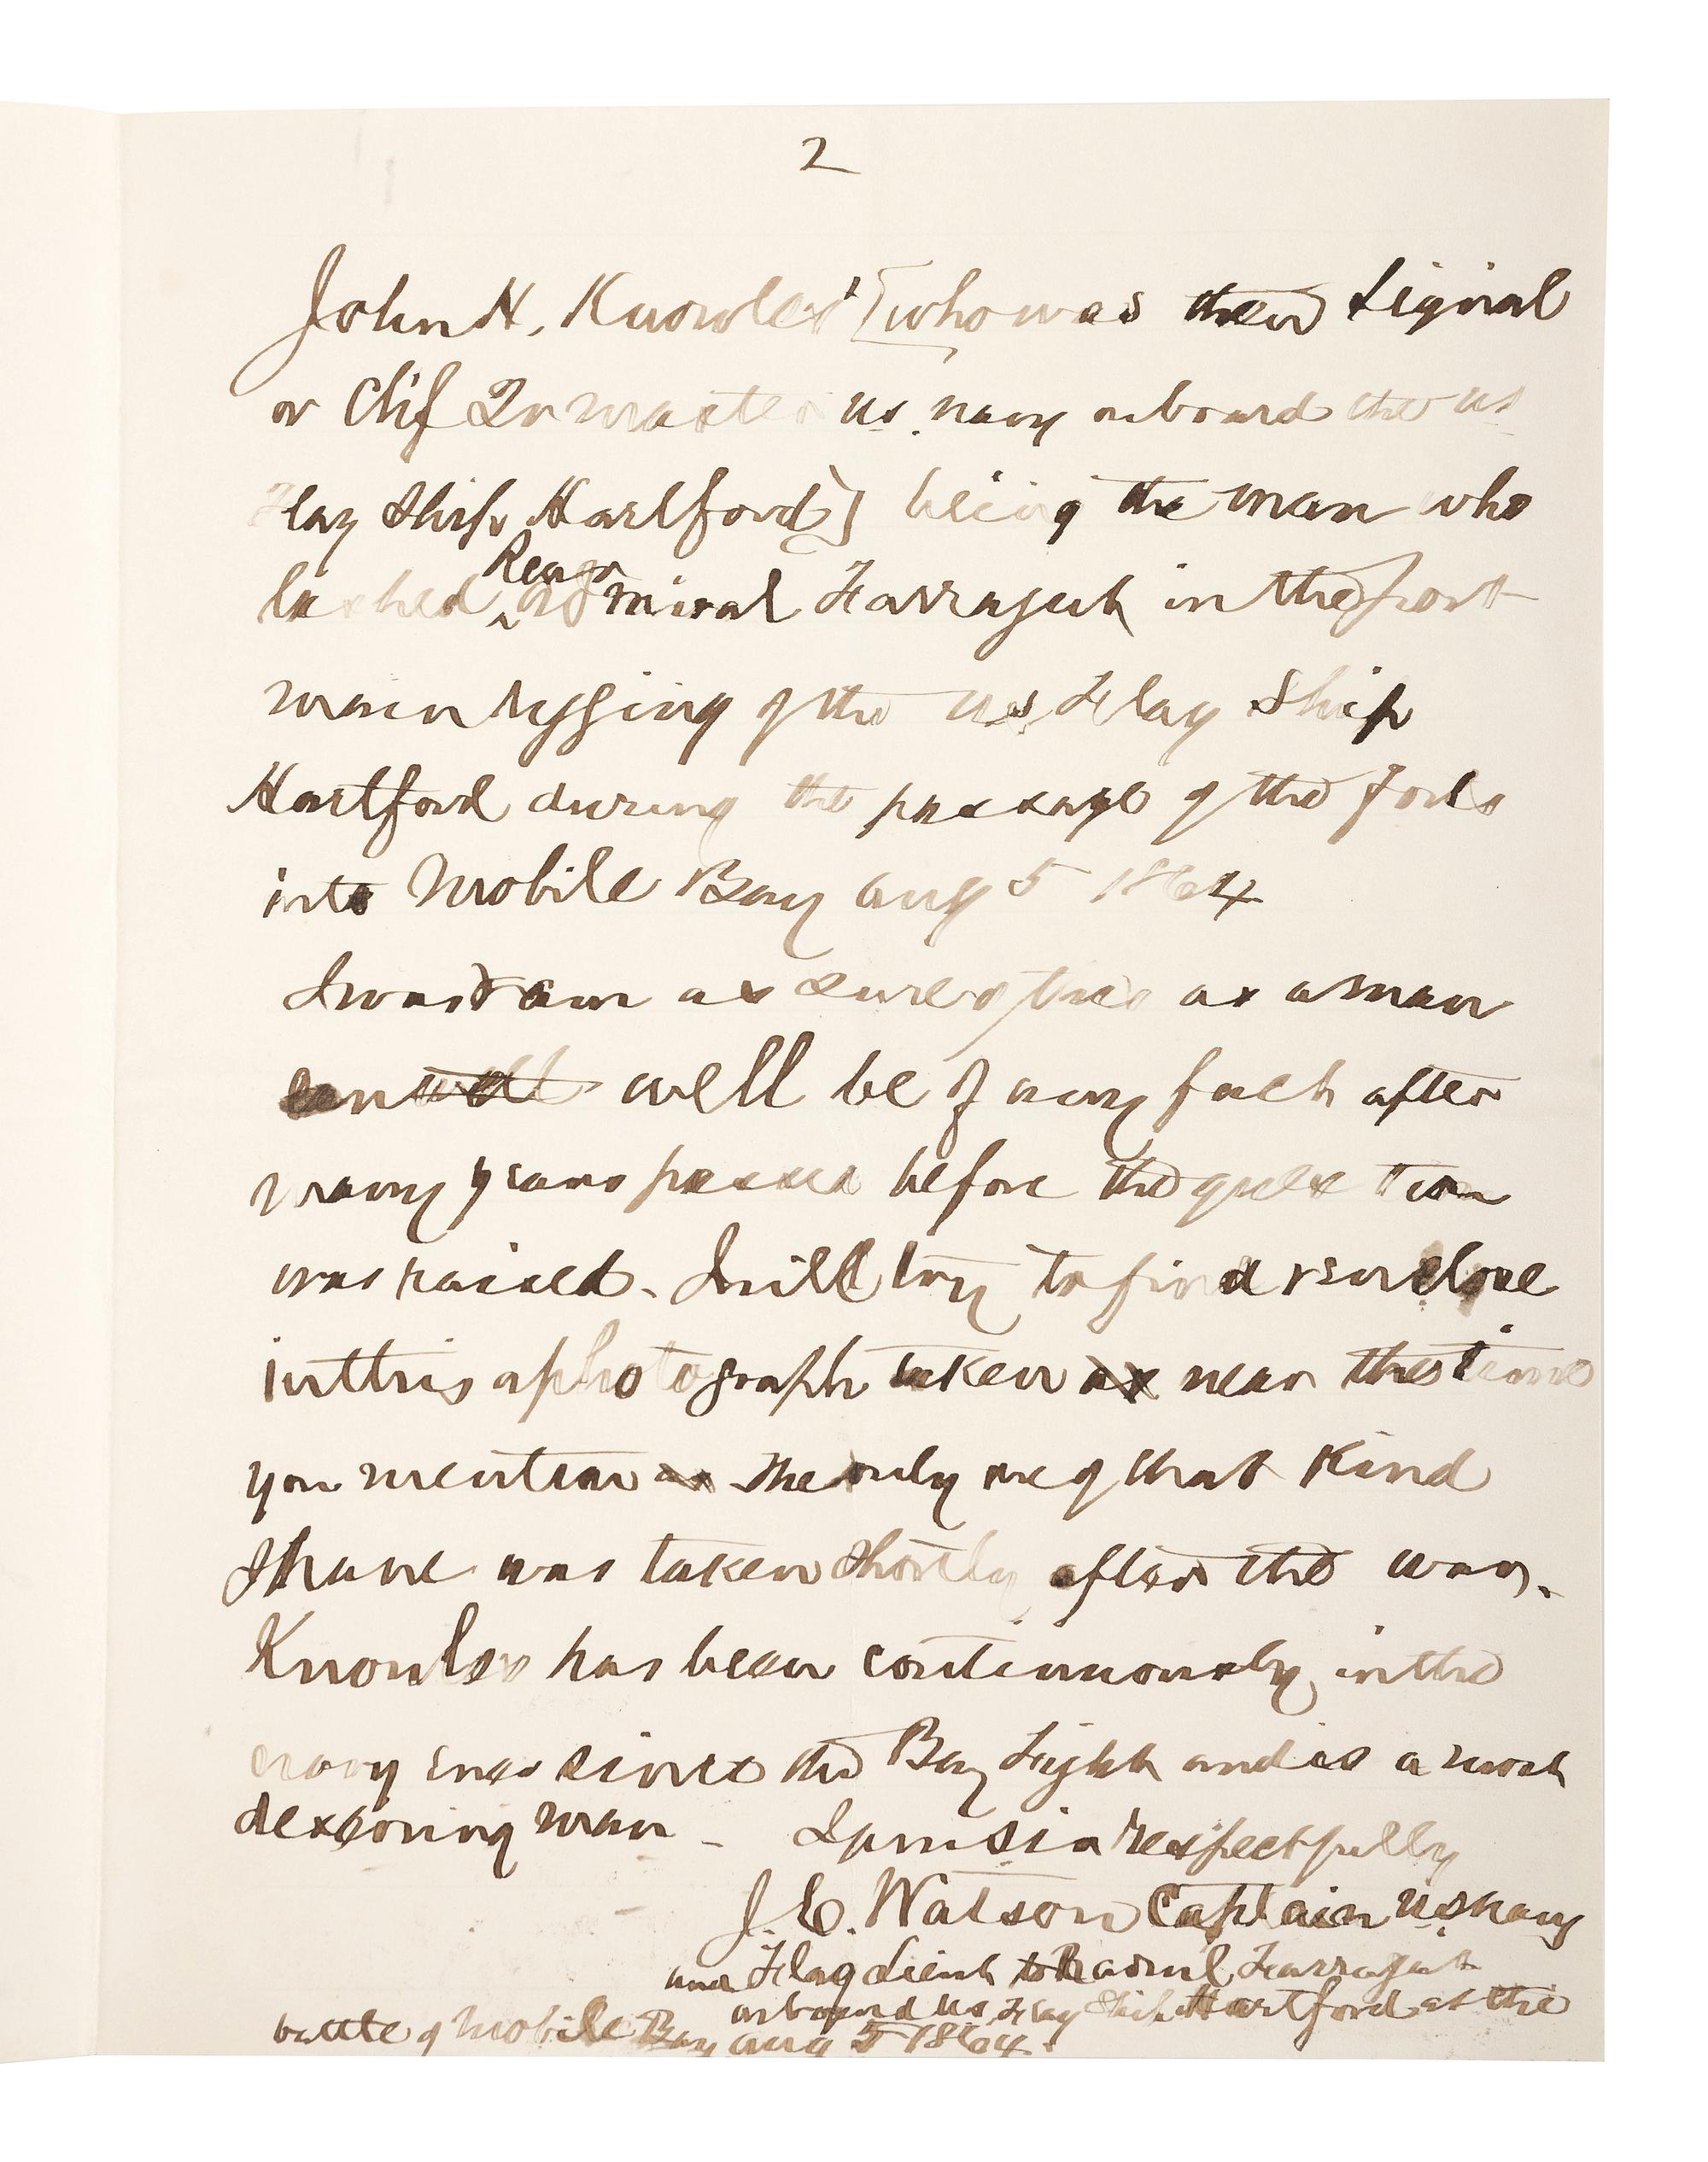 2
John H. Knowles' [who was then signal
or Chif Qr master us. navy onboard the us
Flag Ship Hartford] being the man who
Rear
lashed ^ admiral Farragut in the port
main rigging of the us Flag Ship
Hartford during the passage of the forts
into Mobile Bay Aug 5 1864
I was & am as sure of this as a man
can well be of any fact after
many years passed before the question
was raised. I will try to find & enclose
in this a photograph taken as near the time
you mention as the only one of that kind
I have was taken shortly after the war.
Knowles has been continuously in the
navy ever since the Bay Fight and is a most
deserving man - I am sir respectfully
J. C. Watson Captain U.S. Navy
and Flag Lieut to R admrl Farragut
on board us Flag Ship Hartford at the
battle of Mobile Bay Aug 5 1864.